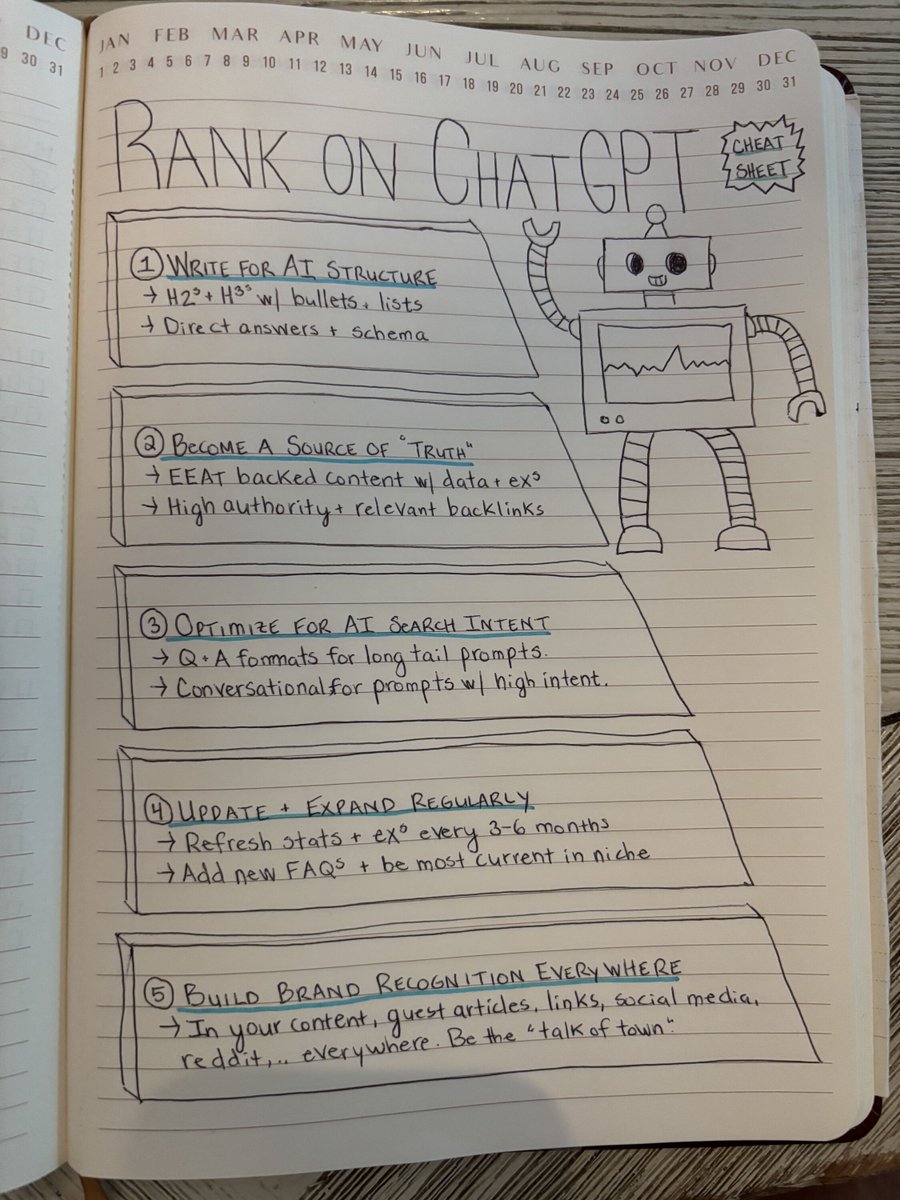 DEC
9 30 31
JAN FEB MAR APR MAY JUN JUL AUG SEP OCT NOV DEC
1 2 3 4 5 6 7 8 9 10 11 12 13 14 15 16 17 18 19 20 21 22 23 24 25 26 27 28 29 30 31
RANK ON CHATGPT
CHEAT
SHEET
① WRITE FOR AI STRUCTURE
→ H2s + H3s w/ bullets + lists
→ Direct answers + schema
② BECOME A SOURCE OF "TRUTH"
→ EEAT backed content w/ data + exs
→ High authority + relevant backlinks
③ OPTIMIZE FOR AI SEARCH INTENT
→ Q+A formats for long tail prompts.
→ Conversational for prompts w/ high intent.
④ UPDATE + EXPAND REGULARLY
→ Refresh stats + exs every 3-6 months
→ Add new FAQs + be most current in niche
⑤ BUILD BRAND RECOGNITION EVERYWHERE
→ In your content, guest articles, links, social media,
reddit,... everywhere. Be the "talk of town".